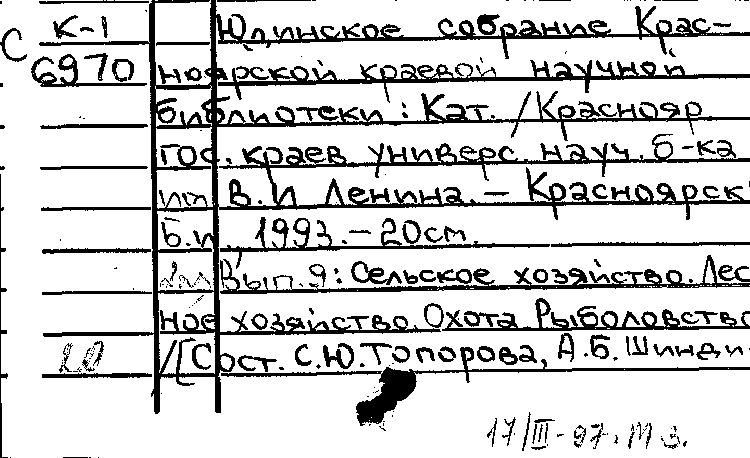 К-1 Юдинское собрание Крас-
С 6970 ноярской краевой научной
библиотеки: Кат. /Краснояр.
гос. краев. универс. науч. б-ка
им. В.И. Ленина. – Красноярск:
Б.и., 1993. – 20см.
Вып. 9: Сельское хозяйство. Лес
ное хозяйство. Охота. Рыболовство
/[Сост. С.Ю. Топорова, А.Б. Шинди-
17/III-97.